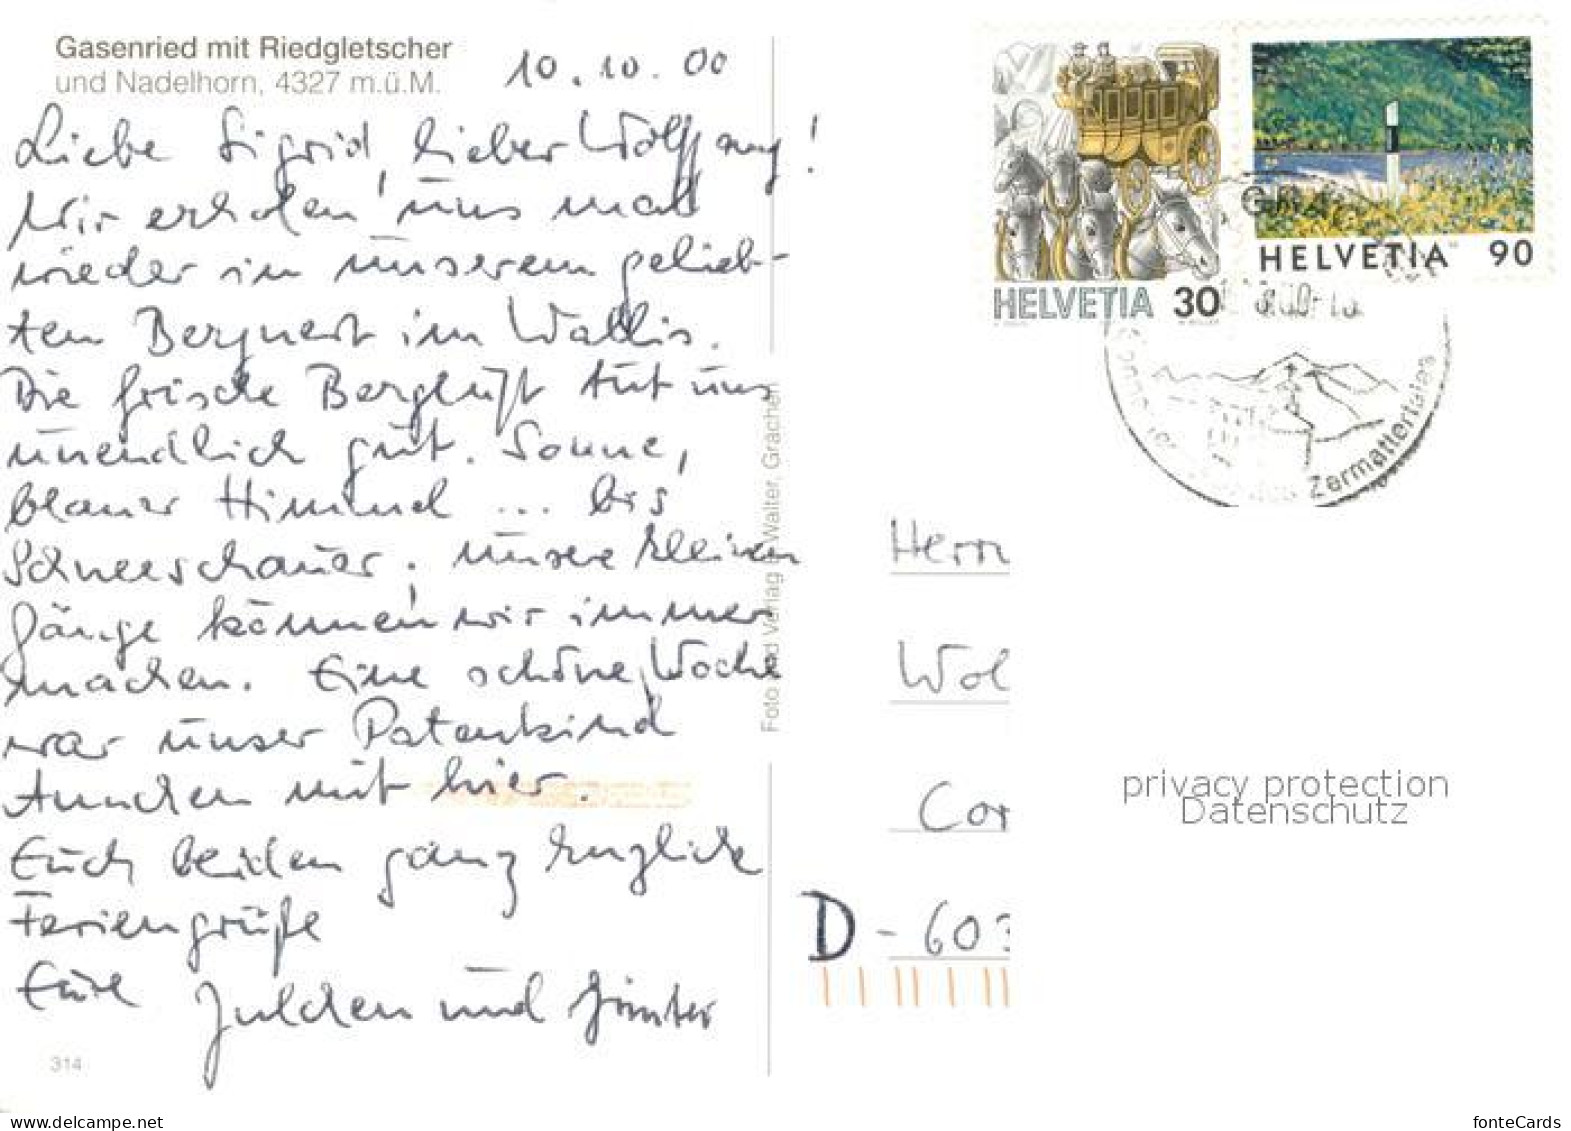 Gasenried mit Riedgletscher
und Nadelhorn, 4327 m.ü.M.
10.10.00
Liebe Sigrid, lieber Wolfgang!
Wir erholen uns mal
wieder in unserem gelieb-
ten Bergnest im Wallis.
Die frische Bergluft tut uns
unendlich gut. Sonne,
blauer Himmel ... bis
Schneeschauer; unsere kleinen
Gänge können wir immer
machen. Eine schöne Woche
war unser Patenkind
Annchen mit hier.
Euch beiden ganz herzliche
Feriengrüße
Eure Julchen und Günter
314
Foto und Verlag Walter, Grächen
HELVETIA 30
HELVETIA 90
Zermattertales
Herrn
Wol
Cor
D - 603
privacy protection
Datenschutz
www.delcampe.net
fonteCards